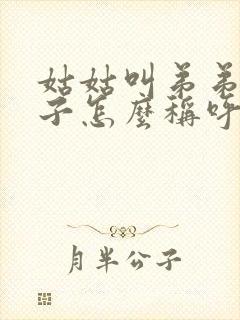 姑姑叫弟弟
子怎麼稱呼
月半公子